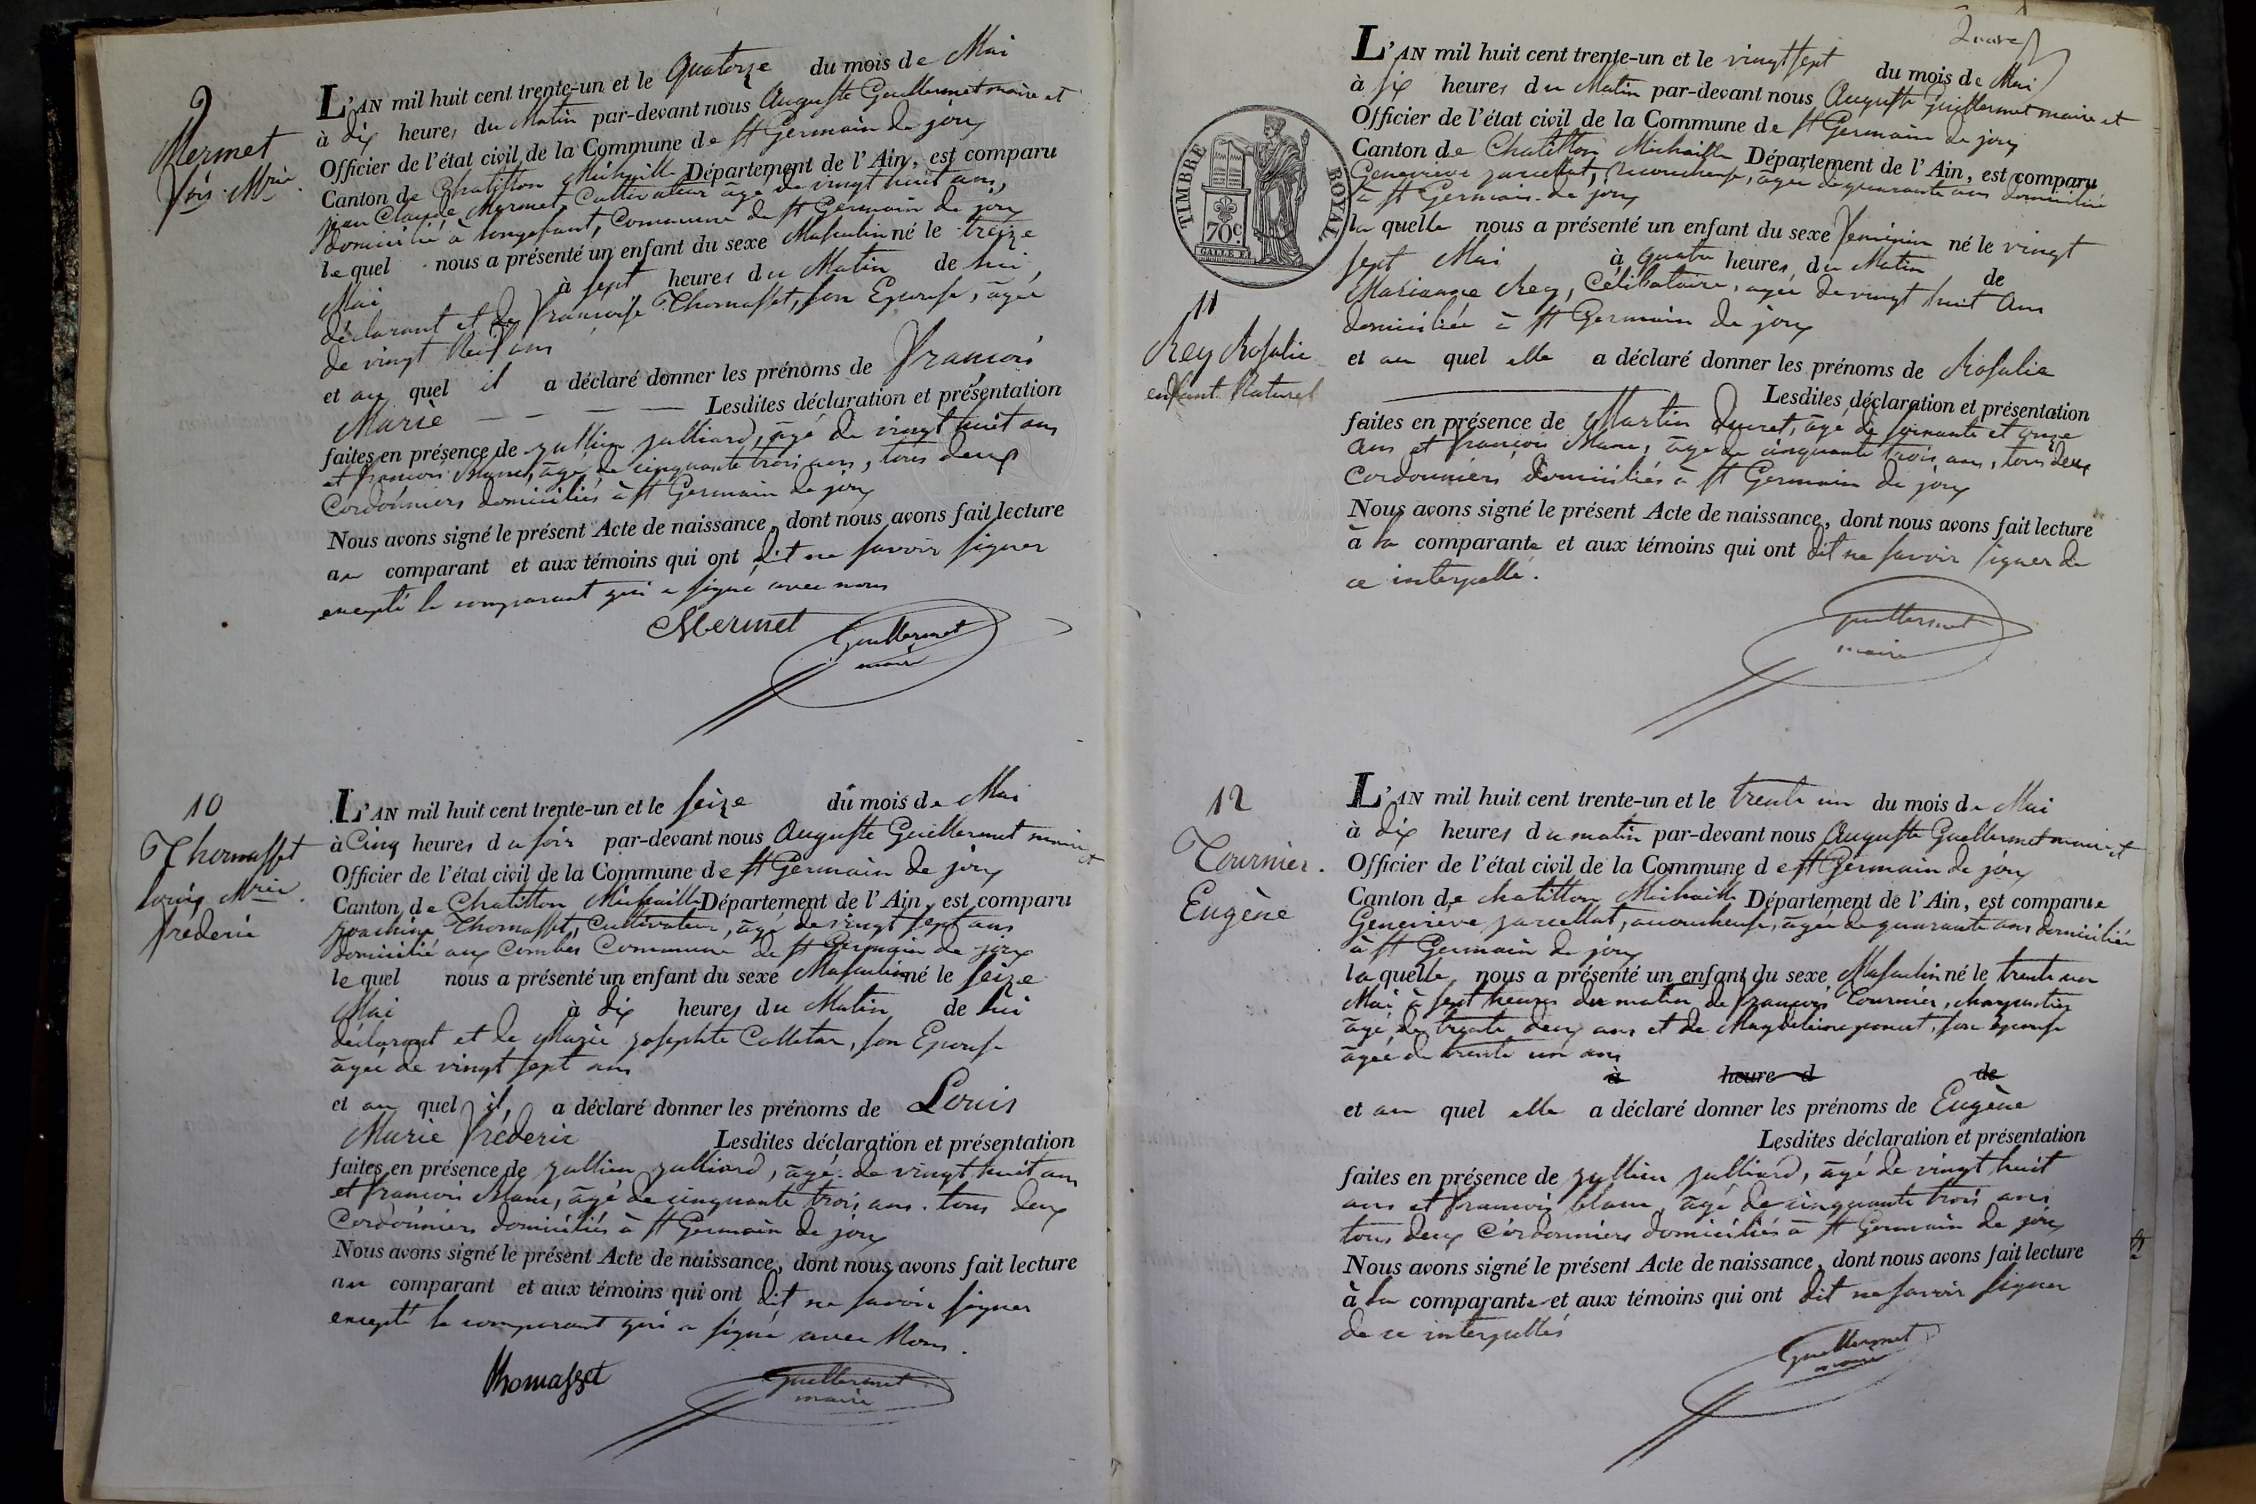 9
Mermet
fois Mrie
L'AN mil huit cent trente-un et le quatorze du mois de Mai
à dix heures du Matin par-devant nous Auguste Guillermet maire et
Officier de l'état civil de la Commune de St Germain de joux
Canton de Chatillon Michaille Département de l'Ain, est comparu
jean Claude Mermet, Cultivateur âgé de vingt huit ans,
domicilié à longefant, Commune de St Germain de joux
le quel nous a présenté un enfant du sexe Masculin né le treize
Mai à sept heures du Matin de lui,
déclarant et de françoise Thomasset, son Epouse, âgée
de vingt neuf ans
et au quel il a déclaré donner les prénoms de François
Marie Lesdites déclaration et présentation
faites en présence de jullien julliard, âgé de vingt huit ans
et françois blanc, âgé de cinquante trois ans, tous deux
Cordonniers domiciliés à St Germain de joux
Nous avons signé le présent Acte de naissance, dont nous avons fait lecture
au comparant et aux témoins qui ont dit ne savoir signer
excepté le comparant qui a signé avec nous
Mermet Guillermet
maire
10
Thomasset
louis Mrie
fréderic
L'AN mil huit cent trente-un et le seize du mois de Mai
à Cinq heures du soir par-devant nous Auguste Guillermet maire et
Officier de l'état civil de la Commune de St Germain de joux
Canton de Chatillon Michaille Département de l'Ain, est comparu
joachim Thomasset, Cultivateur, âgé de vingt sept ans
domicilié aux Combes Commune de St Germain de joux
le quel nous a présenté un enfant du sexe Masculin né le seize
Mai à dix heures du Matin de lui
déclarant et de Marie josephte Colletaz, son Epouse
âgée de vingt sept ans
et au quel il, a déclaré donner les prénoms de Louis
Marie fréderic Lesdites déclaration et présentation
faites en présence de jullien julliard, âgé de vingt huit ans
et françois blanc, âgé de cinquante trois ans. tous deux
Cordonniers domiciliés à St Germain de joux
Nous avons signé le présent Acte de naissance, dont nous avons fait lecture
au comparant et aux témoins qui ont dit ne savoir signer
excepté le comparant qui a signé avec Nous.
Thomasset Guillermet
maire
TIMBRE ROYAL
70c
11
Rey Rosalie
enfant Naturel
L'AN mil huit cent trente-un et le vingt sept du mois de Mai
à six heures du Matin par-devant nous Auguste Guillermet maire et
Officier de l'état civil de la Commune de St Germain de joux
Canton de Chatillon Michaille Département de l'Ain, est comparu
Geneviève jarcellat, accoucheuse, âgée de quarante ans domiciliée
à St Germain de joux
la quelle nous a présenté un enfant du sexe féminin né le vingt
sept Mai à quatre heures du Matin de
Marianne Rey, Célibataire, agée de vingt huit ans
domiciliée à St Germain de joux
et au quel elle a déclaré donner les prénoms de Rosalie
Lesdites déclaration et présentation
faites en présence de Martin ducret, âgé de soixante et onze
ans et françois blanc, âgé de cinquante trois ans, tous deux
Cordonniers domiciliés à St Germain de joux
Nous avons signé le présent Acte de naissance, dont nous avons fait lecture
à la comparante et aux témoins qui ont dit ne savoir signer de
ce interpellé.
Guillermet
maire
12
Tournier.
Eugène
L'AN mil huit cent trente-un et le trente un du mois de Mai
à dix heures du matin par-devant nous Auguste Guillermet maire et
Officier de l'état civil de la Commune de St Germain de joux
Canton de Chatillon Michaille Département de l'Ain, est comparue
Geneviève jarcellat, accoucheuse, âgée de quarante ans domiciliée
à St Germain de joux
la quelle nous a présenté un enfant du sexe Masculin né le trente un
Mai à sept heures du matin de françois Tournier, charpentier
âgé de trente deux ans et de Magdeleine poncet, son épouse
âgée de trente un ans
à heure d de
et au quel elle a déclaré donner les prénoms de Eugène
Lesdites déclaration et présentation
faites en présence de jullien julliard, âgé de vingt huit
ans et françois blanc, âgé de cinquante trois ans
tous deux Cordonniers domiciliés à St Germain de joux
Nous avons signé le présent Acte de naissance, dont nous avons fait lecture
à la comparante et aux témoins qui ont dit ne savoir signer
de ce interpellés
Guillermet
maire